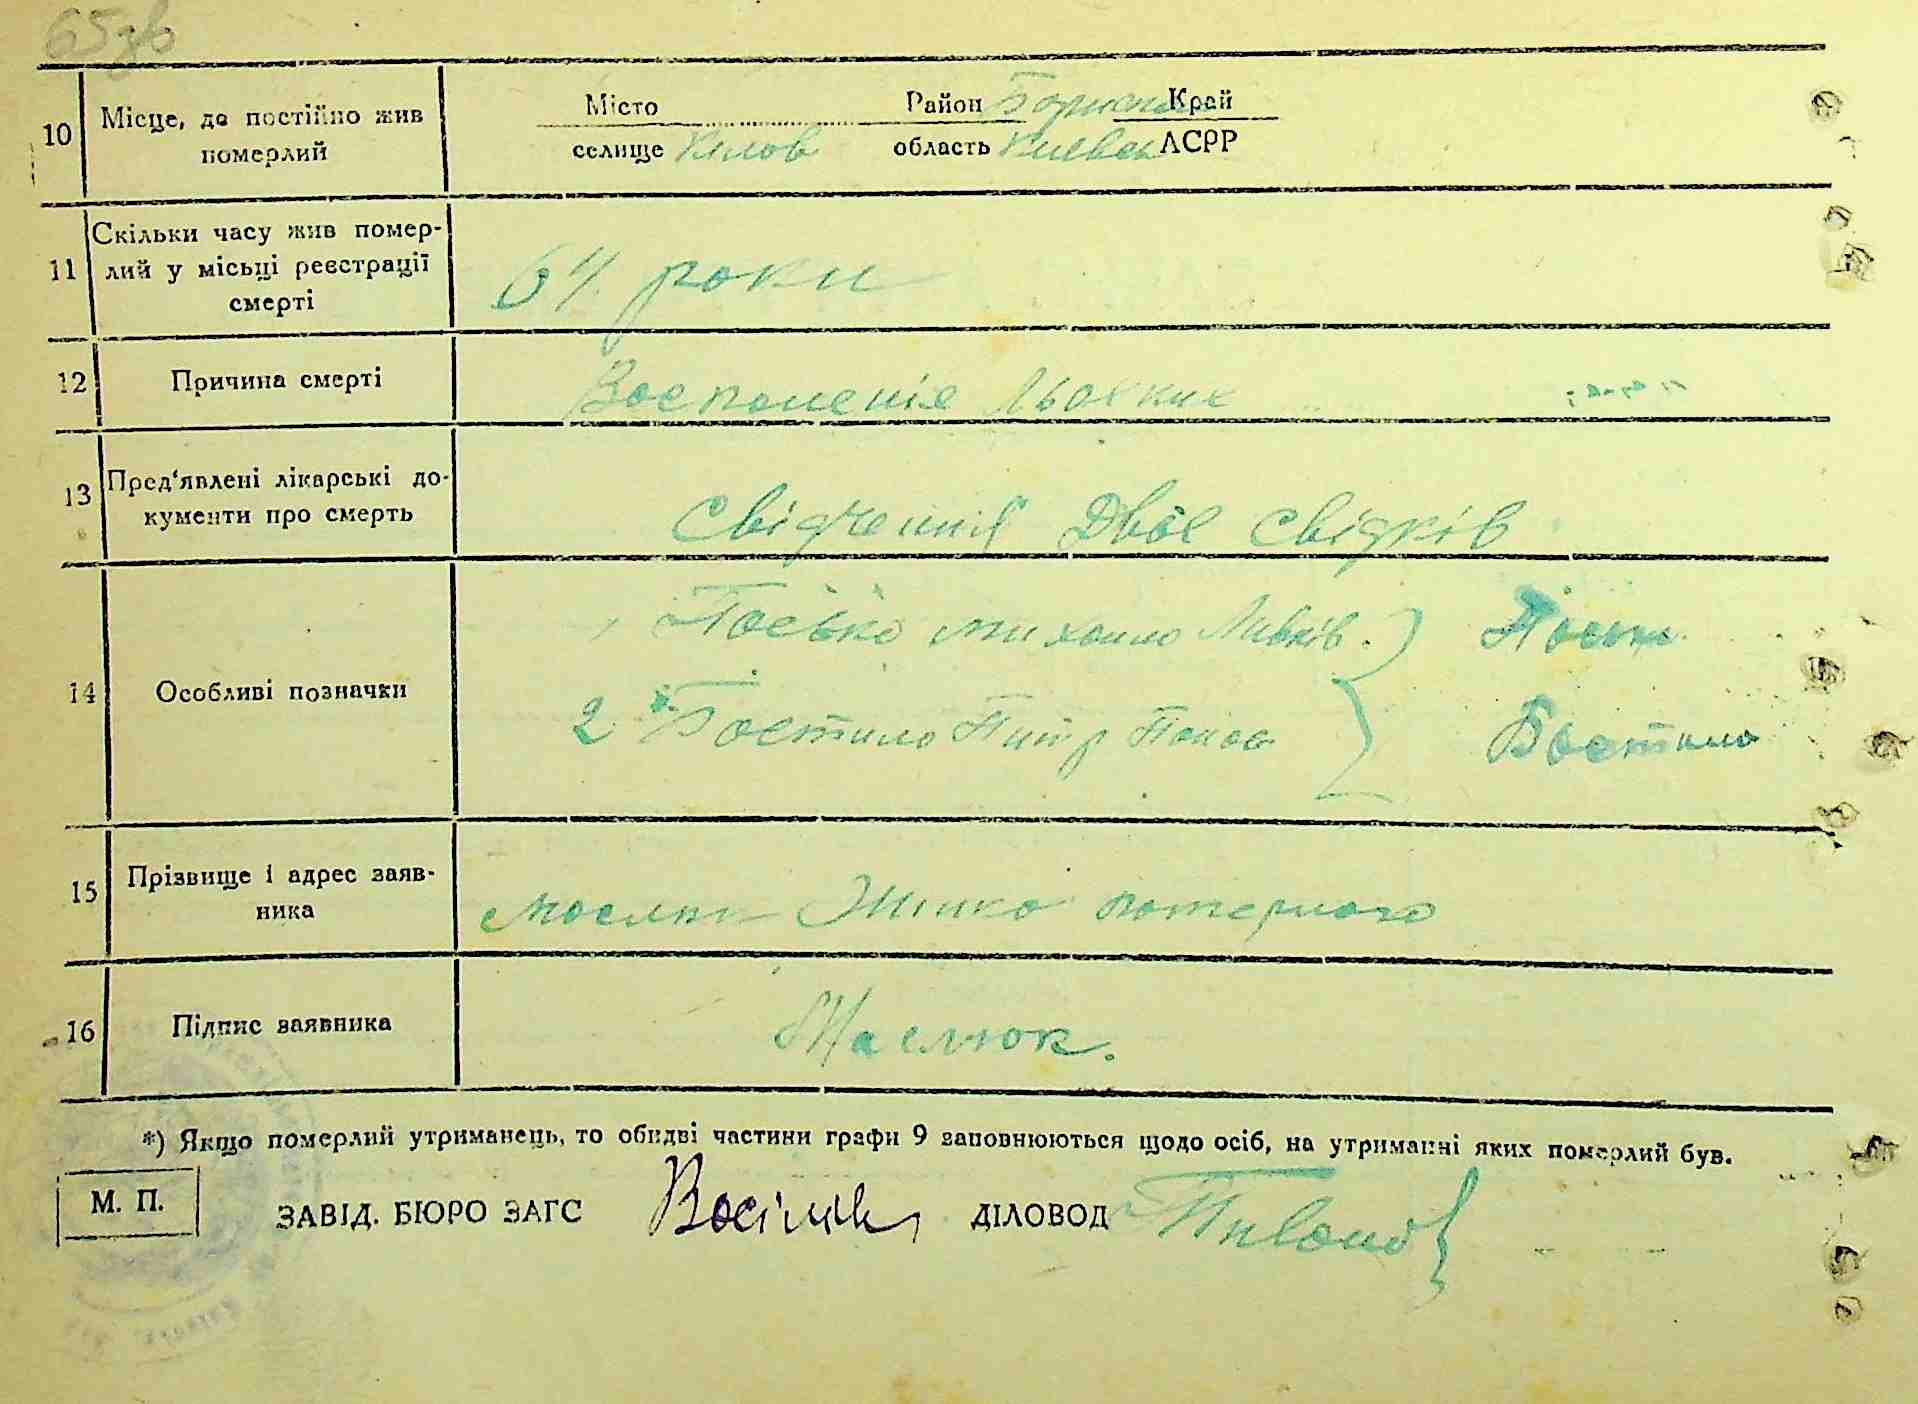 65зв
10 Місце, де постійно жив померлий
Місто Район Борисп Край
селище Кілов область Киевськ АСРР
11 Скільки часу жив помер-
лий у місьці реєстрації
смерті
64 роки
12 Причина смерті
Воспоменія Льохких
13 Пред'явлені лікарські до-
кументи про смерть
Свідченія Двоє свідків
14 Особливі позначки
Поєько михаило Ливків.
2 Бостило Питр Панов Бостило
15 Прізвище і адрес заяв-
ника
Маслюк Жінка помершого
16 Підпис заявника
Маслюк.
*) Якщо померлий утриманець, то обидві частини графи 9 заповнюються щодо осіб, на утриманні яких померлий був.
М. П.
ЗАВІД. БЮРО ЗАГС ДІЛОВОД